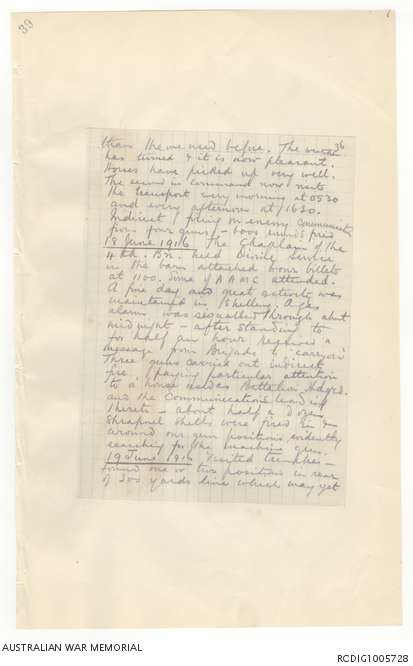 39
36
than the one used before. The weather
has turned & it is now pleasant.
Horses have picked up very well.
The second in command now visits
the transport every morning at 0530
and every afternoon at 1630.
Indirect firing on enemy communications
from four guns – 6000 rounds fired
18 June 1916 The Chaplain of the
4th. Bn. held Divine Service
in the barn attached to our billets
at 1100. Some of A.A.M.C attended.
A fine day and great activity was
maintained in shelling. A gas
alarm was signalled through about
midnight – after standing to
for half an hour received a
message from Brigade to "carry on"
Three guns carried out indirect
fire paying particular attention
to a house used as Battalion Hdqrs.
and the Communications leading
thereto – about half a dozen
shrapnel shells were fired in &
around our gun positions evidently
searching for the machine gun.
19 June 1916 Visited trenches –
found one or two positions in rear
of 300 yards line which may yet
AUSTRALIAN WAR MEMORIAL
RCDIG1005728